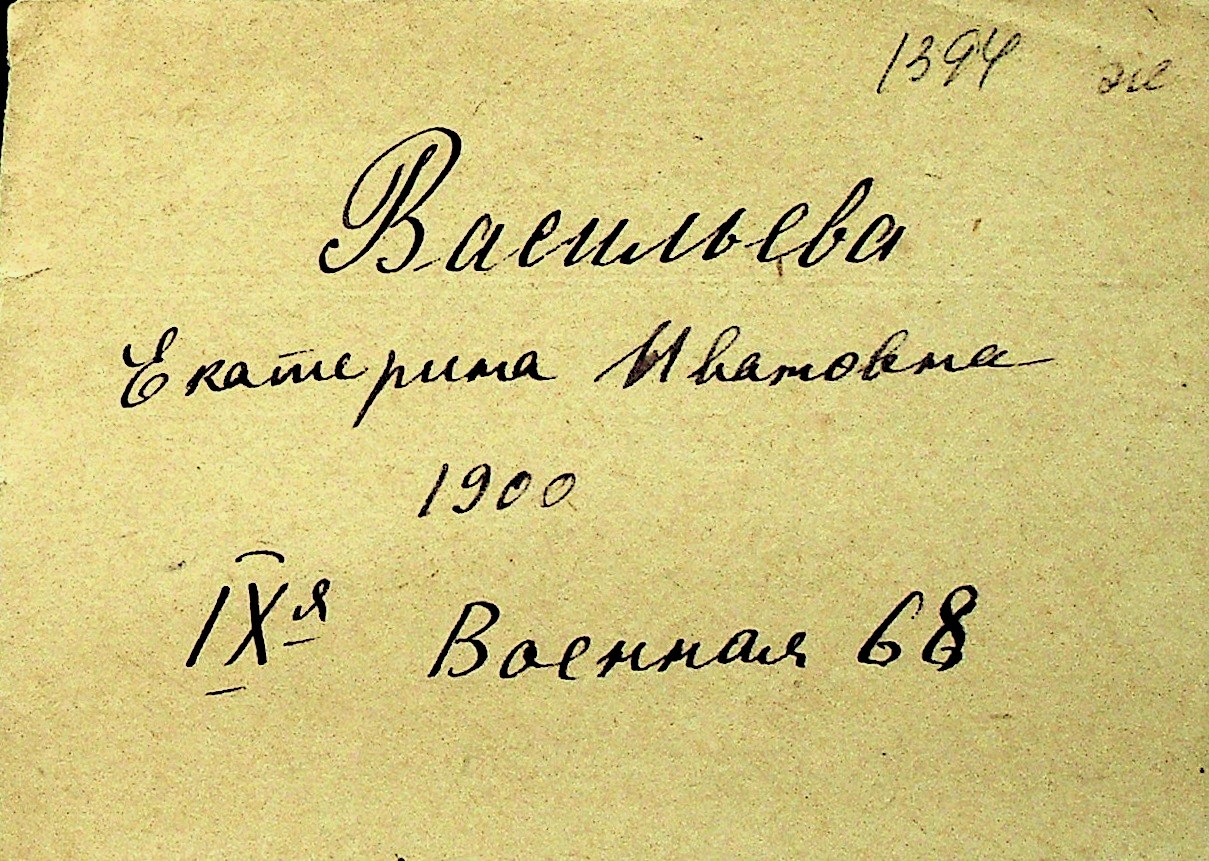 1394 же
Васильева
Екатерина Ивановна
1900
IXя Военная 68